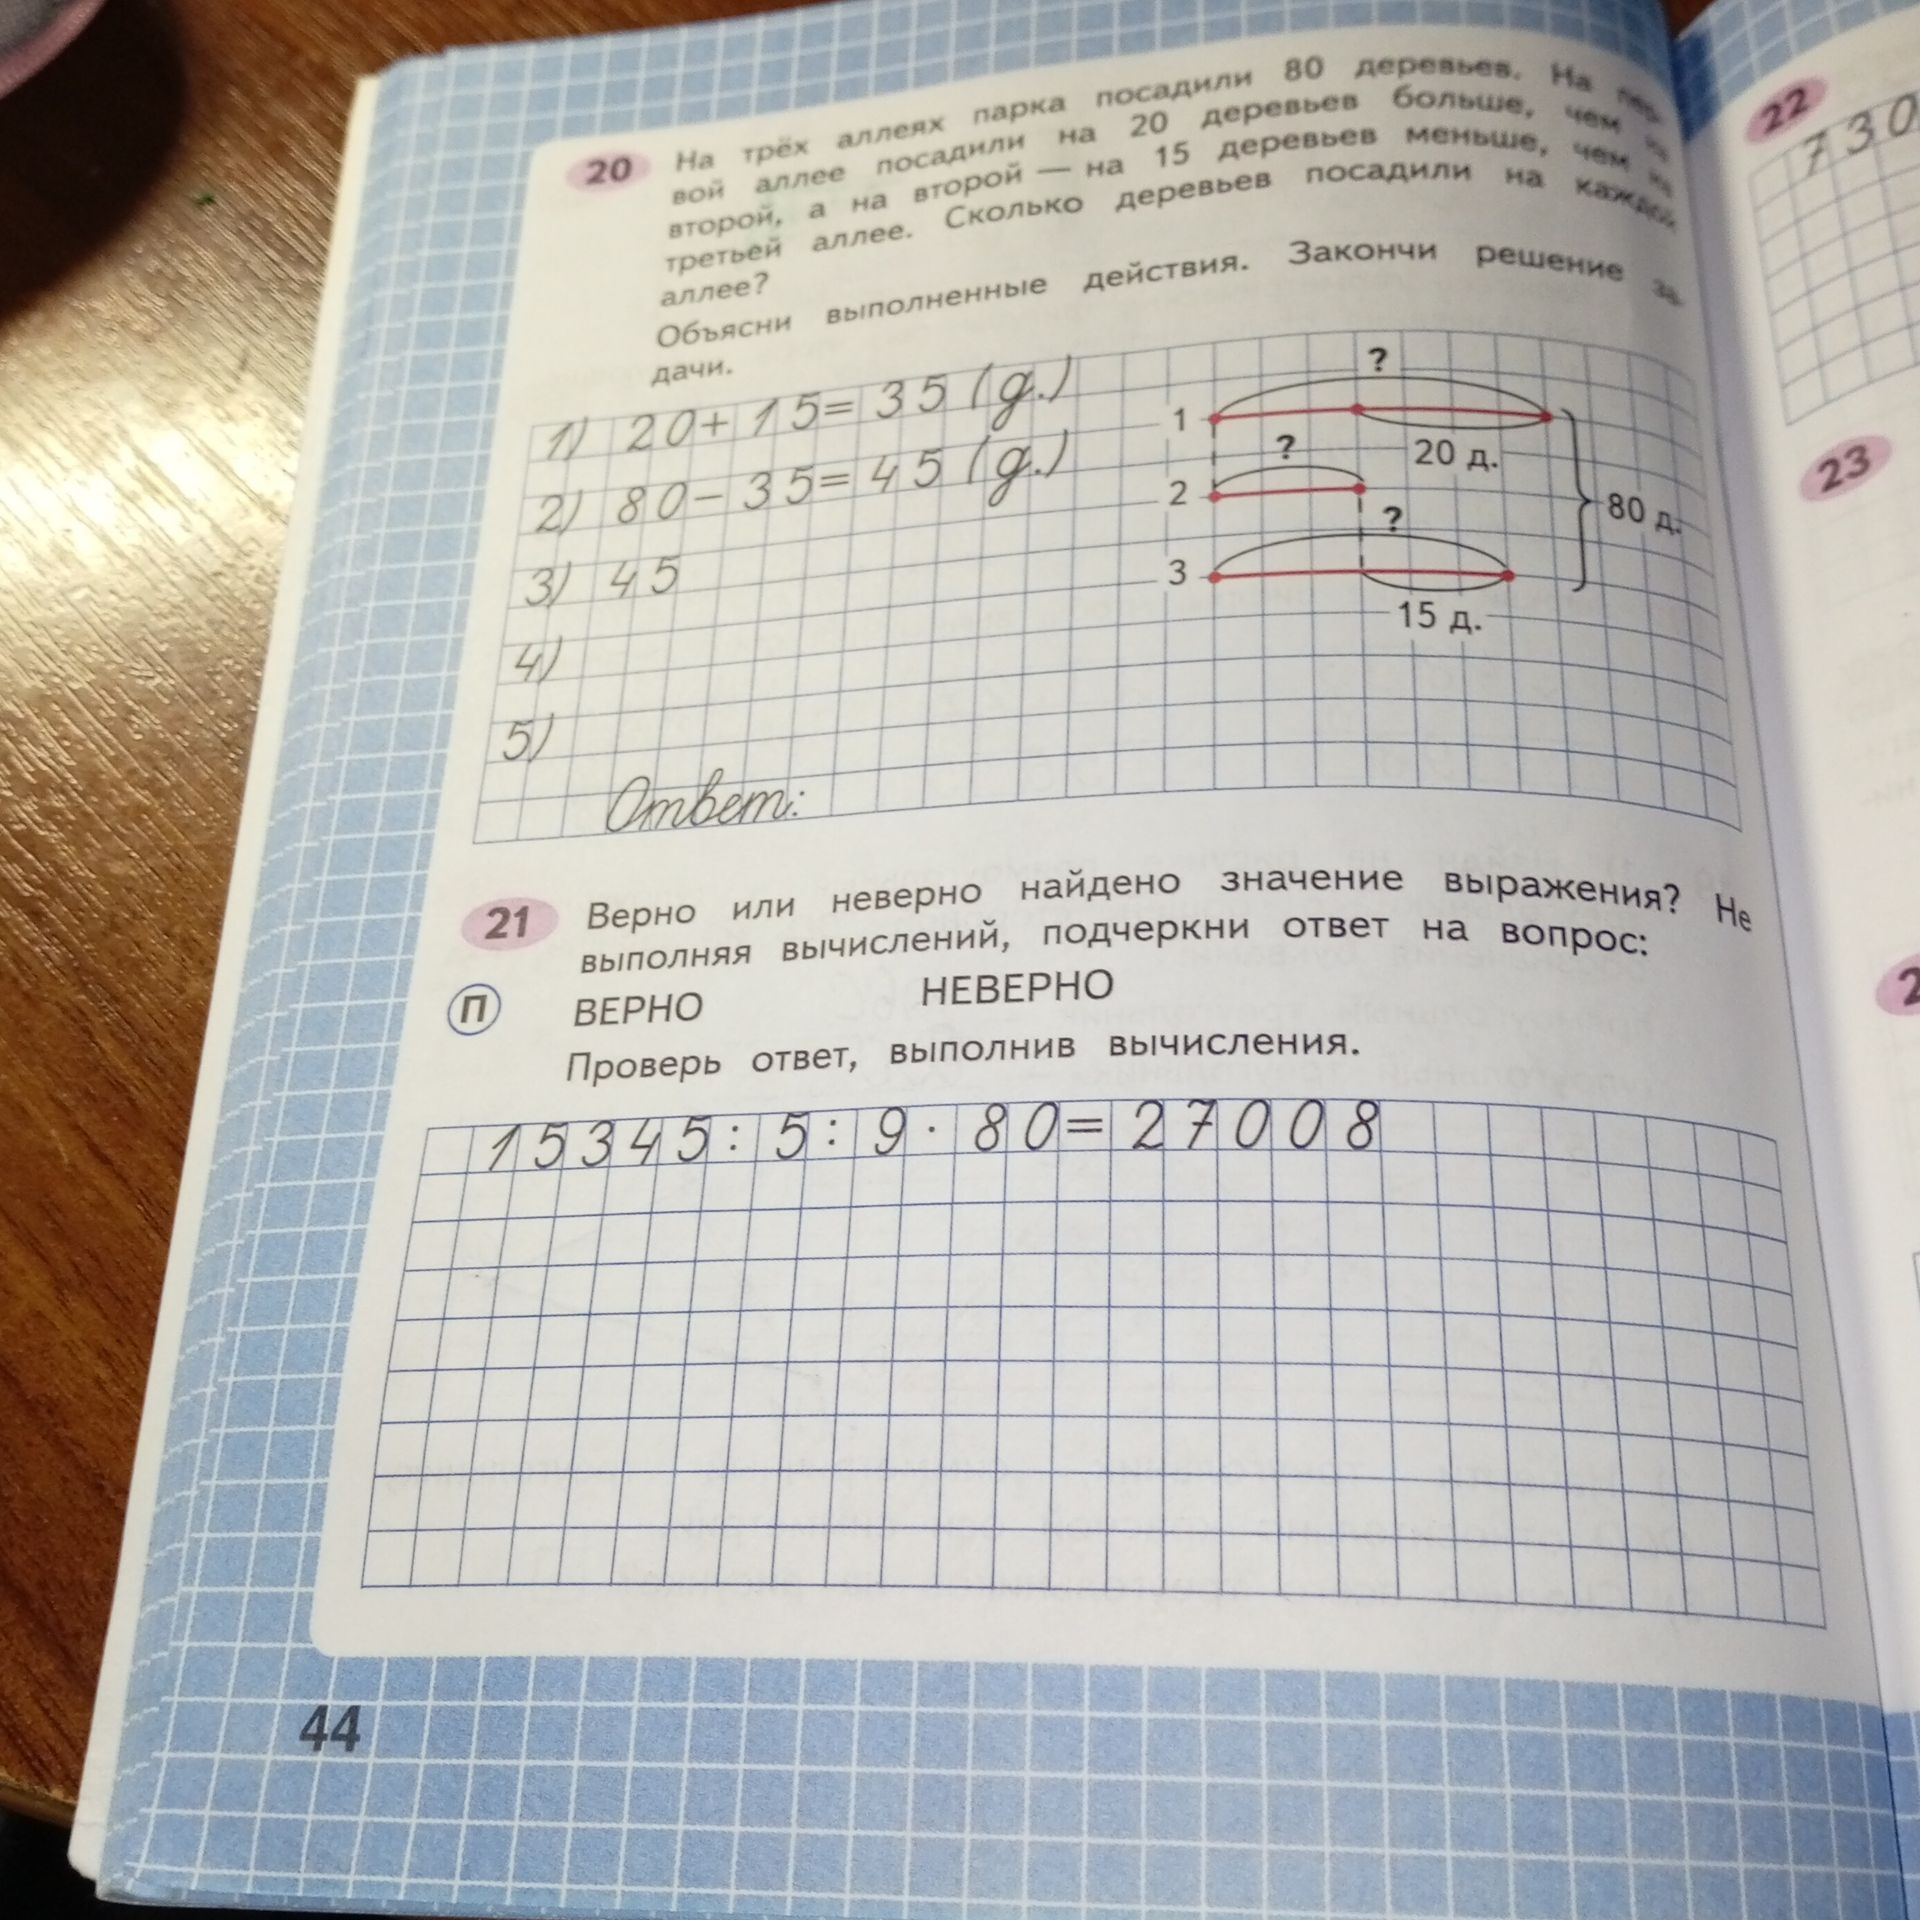 20 На трёх аллеях парка посадили 80 деревьев. На пер-
вой аллее посадили на 20 деревьев больше, чем на
второй, а на второй — на 15 деревьев меньше, чем на
третьей аллее. Сколько деревьев посадили на каждой
аллее?
Объясни выполненные действия. Закончи решение за-
дачи.
1) 20+15=35 (д.)
2) 80-35=45 (д.)
3) 45
4)
5)
Ответ:
?
1
20 д.
?
2
80 д.
?
3
15 д.
21 Верно или неверно найдено значение выражения? Не
выполняя вычислений, подчеркни ответ на вопрос:
П ВЕРНО НЕВЕРНО
Проверь ответ, выполнив вычисления.
15345:5:9·80=27008
44
22
730
23